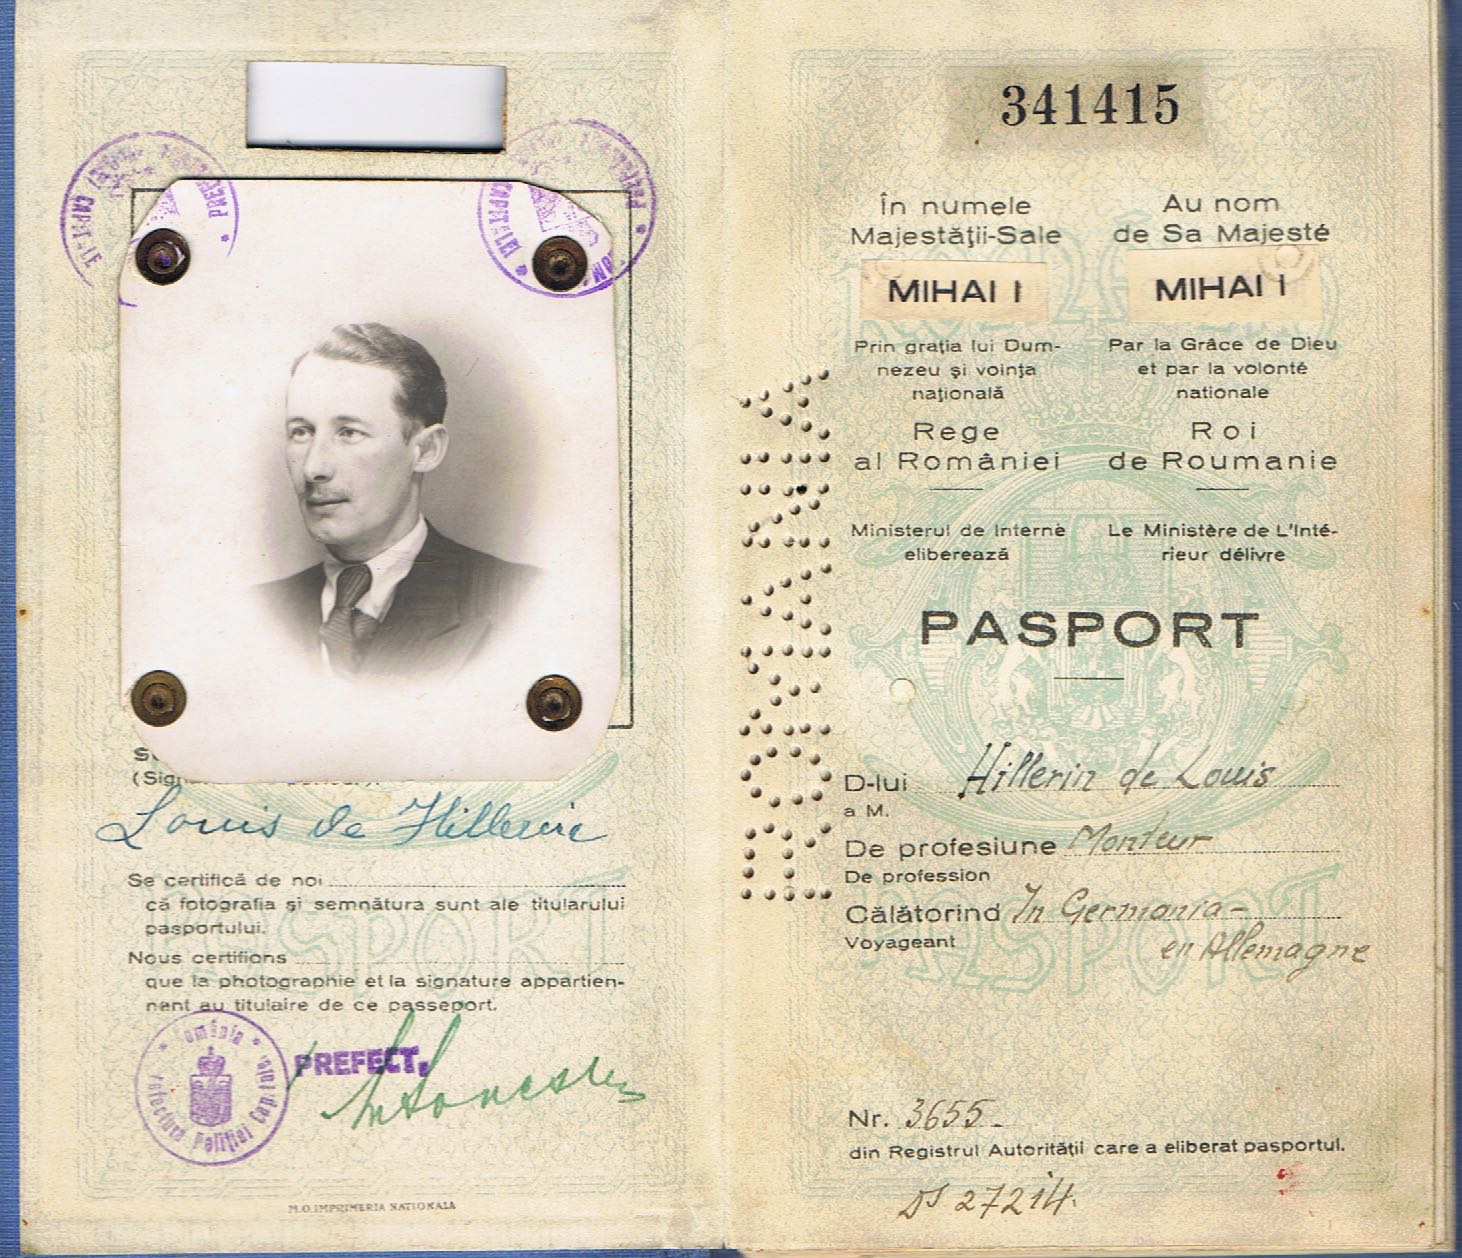 Louis de Hillerin
Se certifică de noi
că fotografia și semnătura sunt ale titularului
pasportului.
Nous certifions
que la photographie et la signature appartien-
nent au titulaire de ce passeport.
PREFECT,
Prefectura Poliției Capitalei
M.O. IMPRIMERIA NATIONALA
341415
În numele
Majestății-Sale
MIHAI I
Prin grația lui Dum-
nezeu și voința
națională
Rege
al României
Ministerul de Interne
eliberează
Au nom
de Sa Majesté
MIHAI I
Par la Grâce de Dieu
et par la volonté
nationale
Roi
de Roumanie
Le Ministère de L'Inté-
rieur délivre
ROMANIA
PASPORT
D-lui Hillerin de Louis
a M.
De profesiune Monteur
De profession
Călătorind In Germania -
Voyageant en Allemagne
Nr. 3655 -
din Registrul Autorității care a eliberat pasportul.
27214.